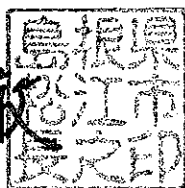 島根県
松江市
長之印